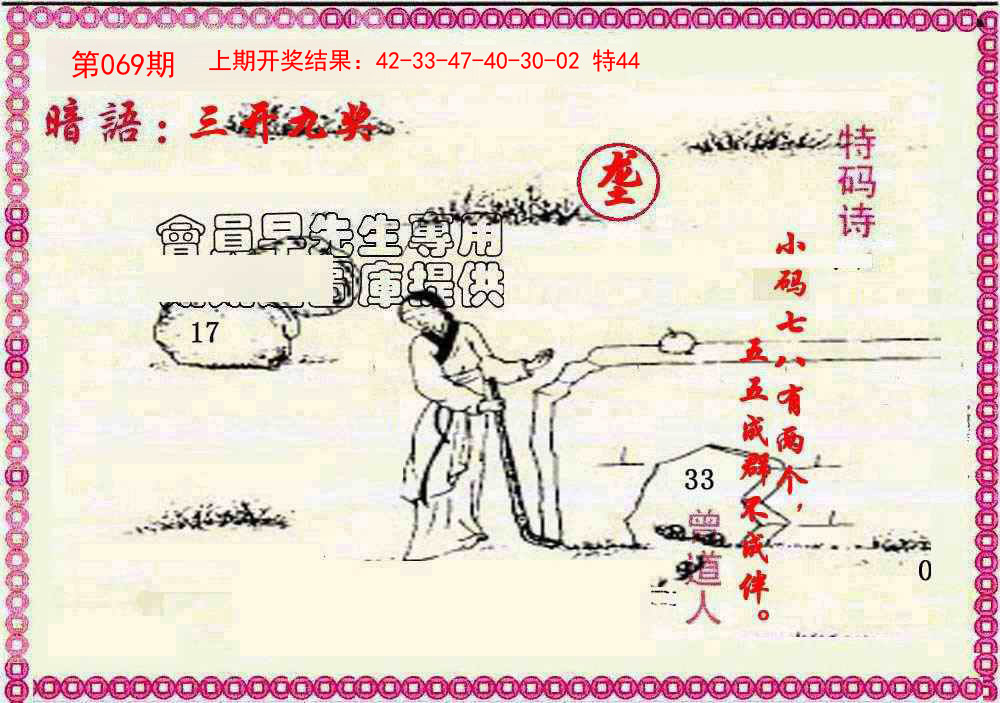 第069期
上期开奖结果：42-33-47-40-30-02 特44
暗語：三开九奖
垄
特码诗
小码七八有两个，
五五成群不成伴。
會員早先生專用
圖庫提供
17
33
曾道人
0